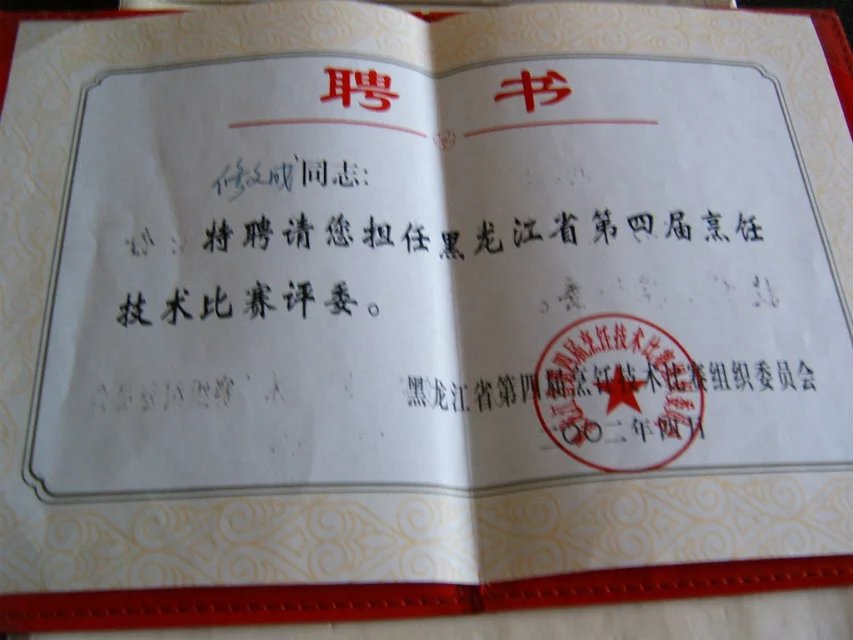 聘书
修文成同志:
特聘请您担任黑龙江省第四届烹饪
技术比赛评委。
黑龙江省第四届烹饪技术比赛组织委员会
二〇〇二年四月